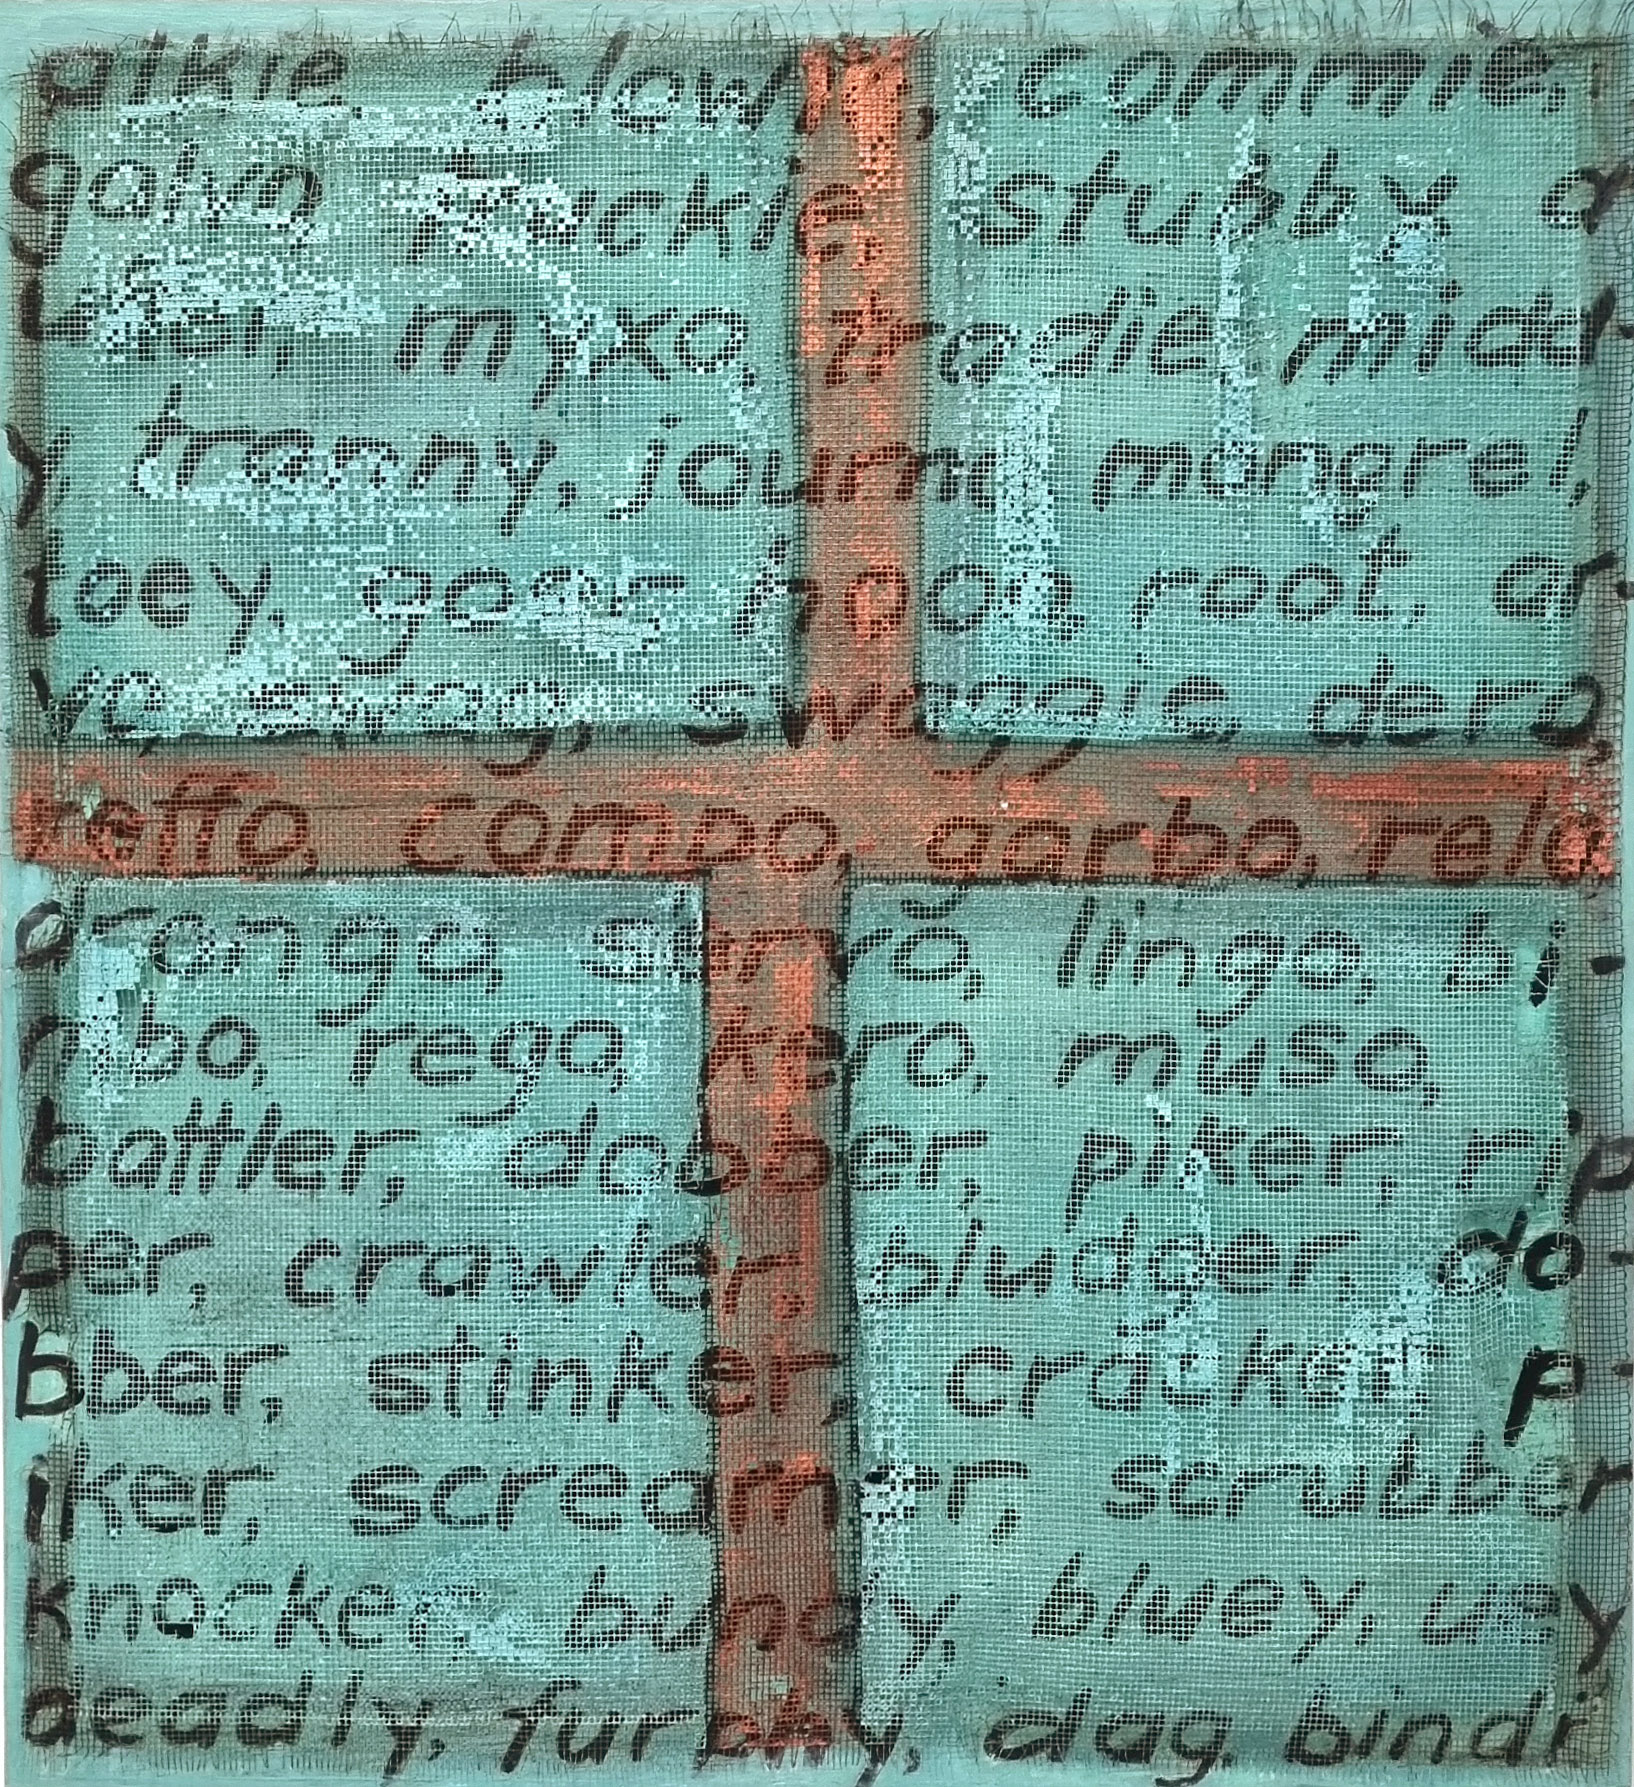 alkie, blowie, commie,
galva truckie stubby a
lkier, myxo, tradie mick-
y tranny, journo mongrel,
toey, goar hoon, root, ar-
vo, swany, swaggie, dero,
reffo, compo, garbo, rela
aronga, servo, lingo, bi-
mbo, rego, kero, muso,
battler, dobber, piker, rip
per, crawler, bludger, do-
bber, stinker, cracker, p-
iker, screamer, scrubber
knocker, bundy, bluey, uey
deadly, furphy, dag, bindi